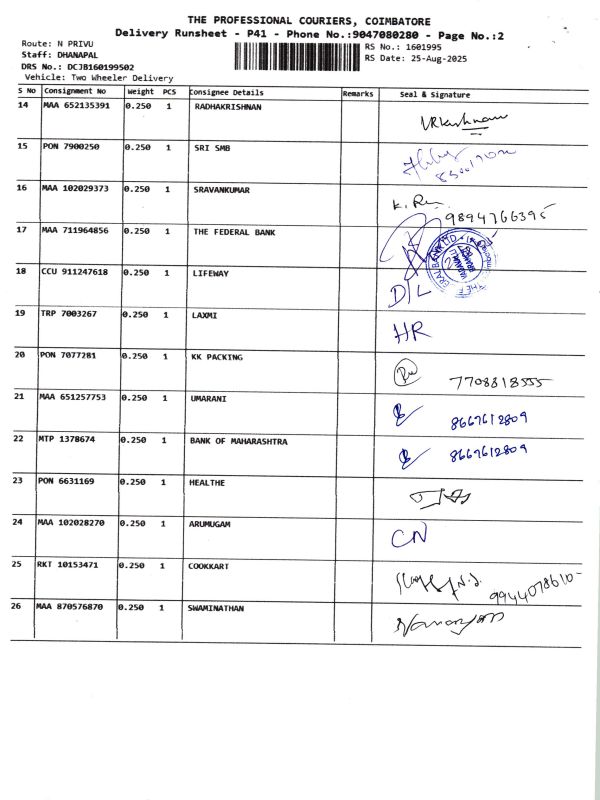 THE PROFESSIONAL COURIERS, COIMBATORE
Delivery Runsheet - P41 - Phone No.:9047080280 - Page No.:2
Route: N PRIVU
RS No.: 1601995
Staff: DHANAPAL
RS Date: 25-Aug-2025
DRS No.: DCJB160199502
Vehicle: Two Wheeler Delivery
S No Consignment No Weight PCS Consignee Details Remarks Seal & Signature
14 MAA 652135391 0.250 1 RADHAKRISHNAN
15 PON 7900250 0.250 1 SRI SMB
16 MAA 102029373 0.250 1 SRAVANKUMAR
9894766395
17 MAA 711964856 0.250 1 THE FEDERAL BANK
18 CCU 911247618 0.250 1 LIFEWAY
D/L
19 TRP 7003267 0.250 1 LAXMI
HR
20 PON 7077281 0.250 1 KK PACKING
7708818555
21 MAA 651257753 0.250 1 UMARANI
8667612809
22 MTP 1378674 0.250 1 BANK OF MAHARASHTRA
8667612809
23 PON 6631169 0.250 1 HEALTHE
24 MAA 102028270 0.250 1 ARUMUGAM
CN
25 RKT 10153471 0.250 1 COOKKART
9944078610
26 MAA 870576870 0.250 1 SWAMINATHAN